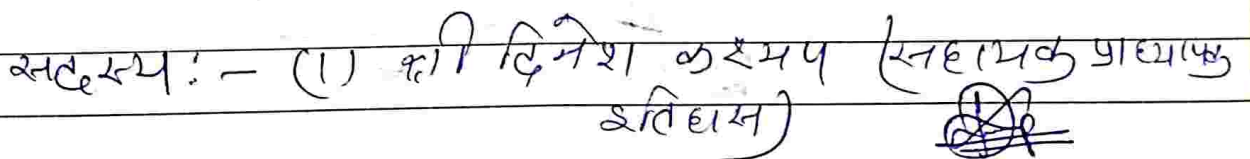 सदस्य :- (1) श्री दिनेश कश्यप (सहायक प्राध्यापक
इतिहास)